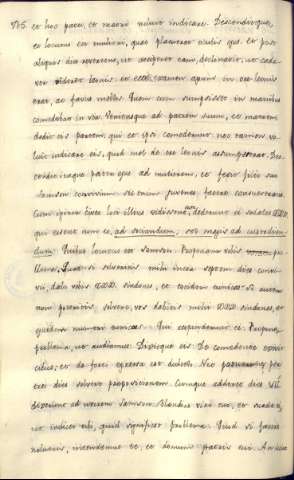 775. et hoc patri, et matri noluit indicare. Descenditque,
et locutus est mulieri, quae placuerat oculis ejus. Et post
aliquos dies revertens, ut acciperet eam, declinavit, ut cada-
ver videret leonis, et ecce examen apum in ore leonis
erat, ac favus mellis. Quem cum sumpsisset in manibus
comedebat in via. Veniensque ad patrem suum, et matrem
dedit eis partem, qui et ipsi comederunt nec tamen vo-
luit indicare eis, quod mel de ore leonis assumpserat. Des-
cendit itaque pater ejus ad mulierem, et fecit filio suo
Samson convivium sic enim juvenes facere consueverant.
Cum igitur cives loci illius vidissent eum, dederunt ei sodales XXX.
qui essent cum eo, ad sociandum, vel magis ad custodien-
dum. Quibus locutus est Samson. Proponam vobis pro-
blema. Quod si solveritis mihi infra septem dies convi-
vii, dabo vobis XXX. sindones, et totidem tunicas: si autem
non potueritis solvere, vos dabitis mihi XXX. sindones, et
ejusdem numeri tunicas. Qui responderunt ei: Propone
problema, ut audiamus. Dixitque eis. De comedente exivit
cibus, et de forti egressa est dulcedo. Nec potuerunt per
tres dies solvere propositionem. Cumque adesset dies VII.
dixerunt ad uxorem Samson. Blandire viro tuo, et suade ei,
ut indicet tibi, quid significet problema. Quod si facere
nolueris, incendemus te, et domum patris tui. An idcirco